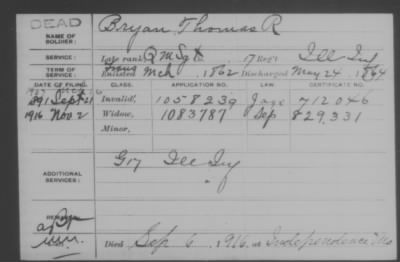 DEAD
NAME OF SOLDIER: Bryan Thomas R
SERVICE: Late rank Q M Sgt 17 Reg't Ill Inf
TERM OF SERVICE: Enlisted Mch , 1862 Discharged May 24 , 1864
DATE OF FILING. CLASS. APPLICATION NO. LAW. CERTIFICATE NO.
1891 Sept 21 Invalid, 1058239 712046
1916 Nov 2 Widow, 1083787 Sep 829,331
Minor,
ADDITIONAL SERVICES: G 17 Ill Inf
REMARKS:
Died Sep 6 , 1916, at Independence, Mo